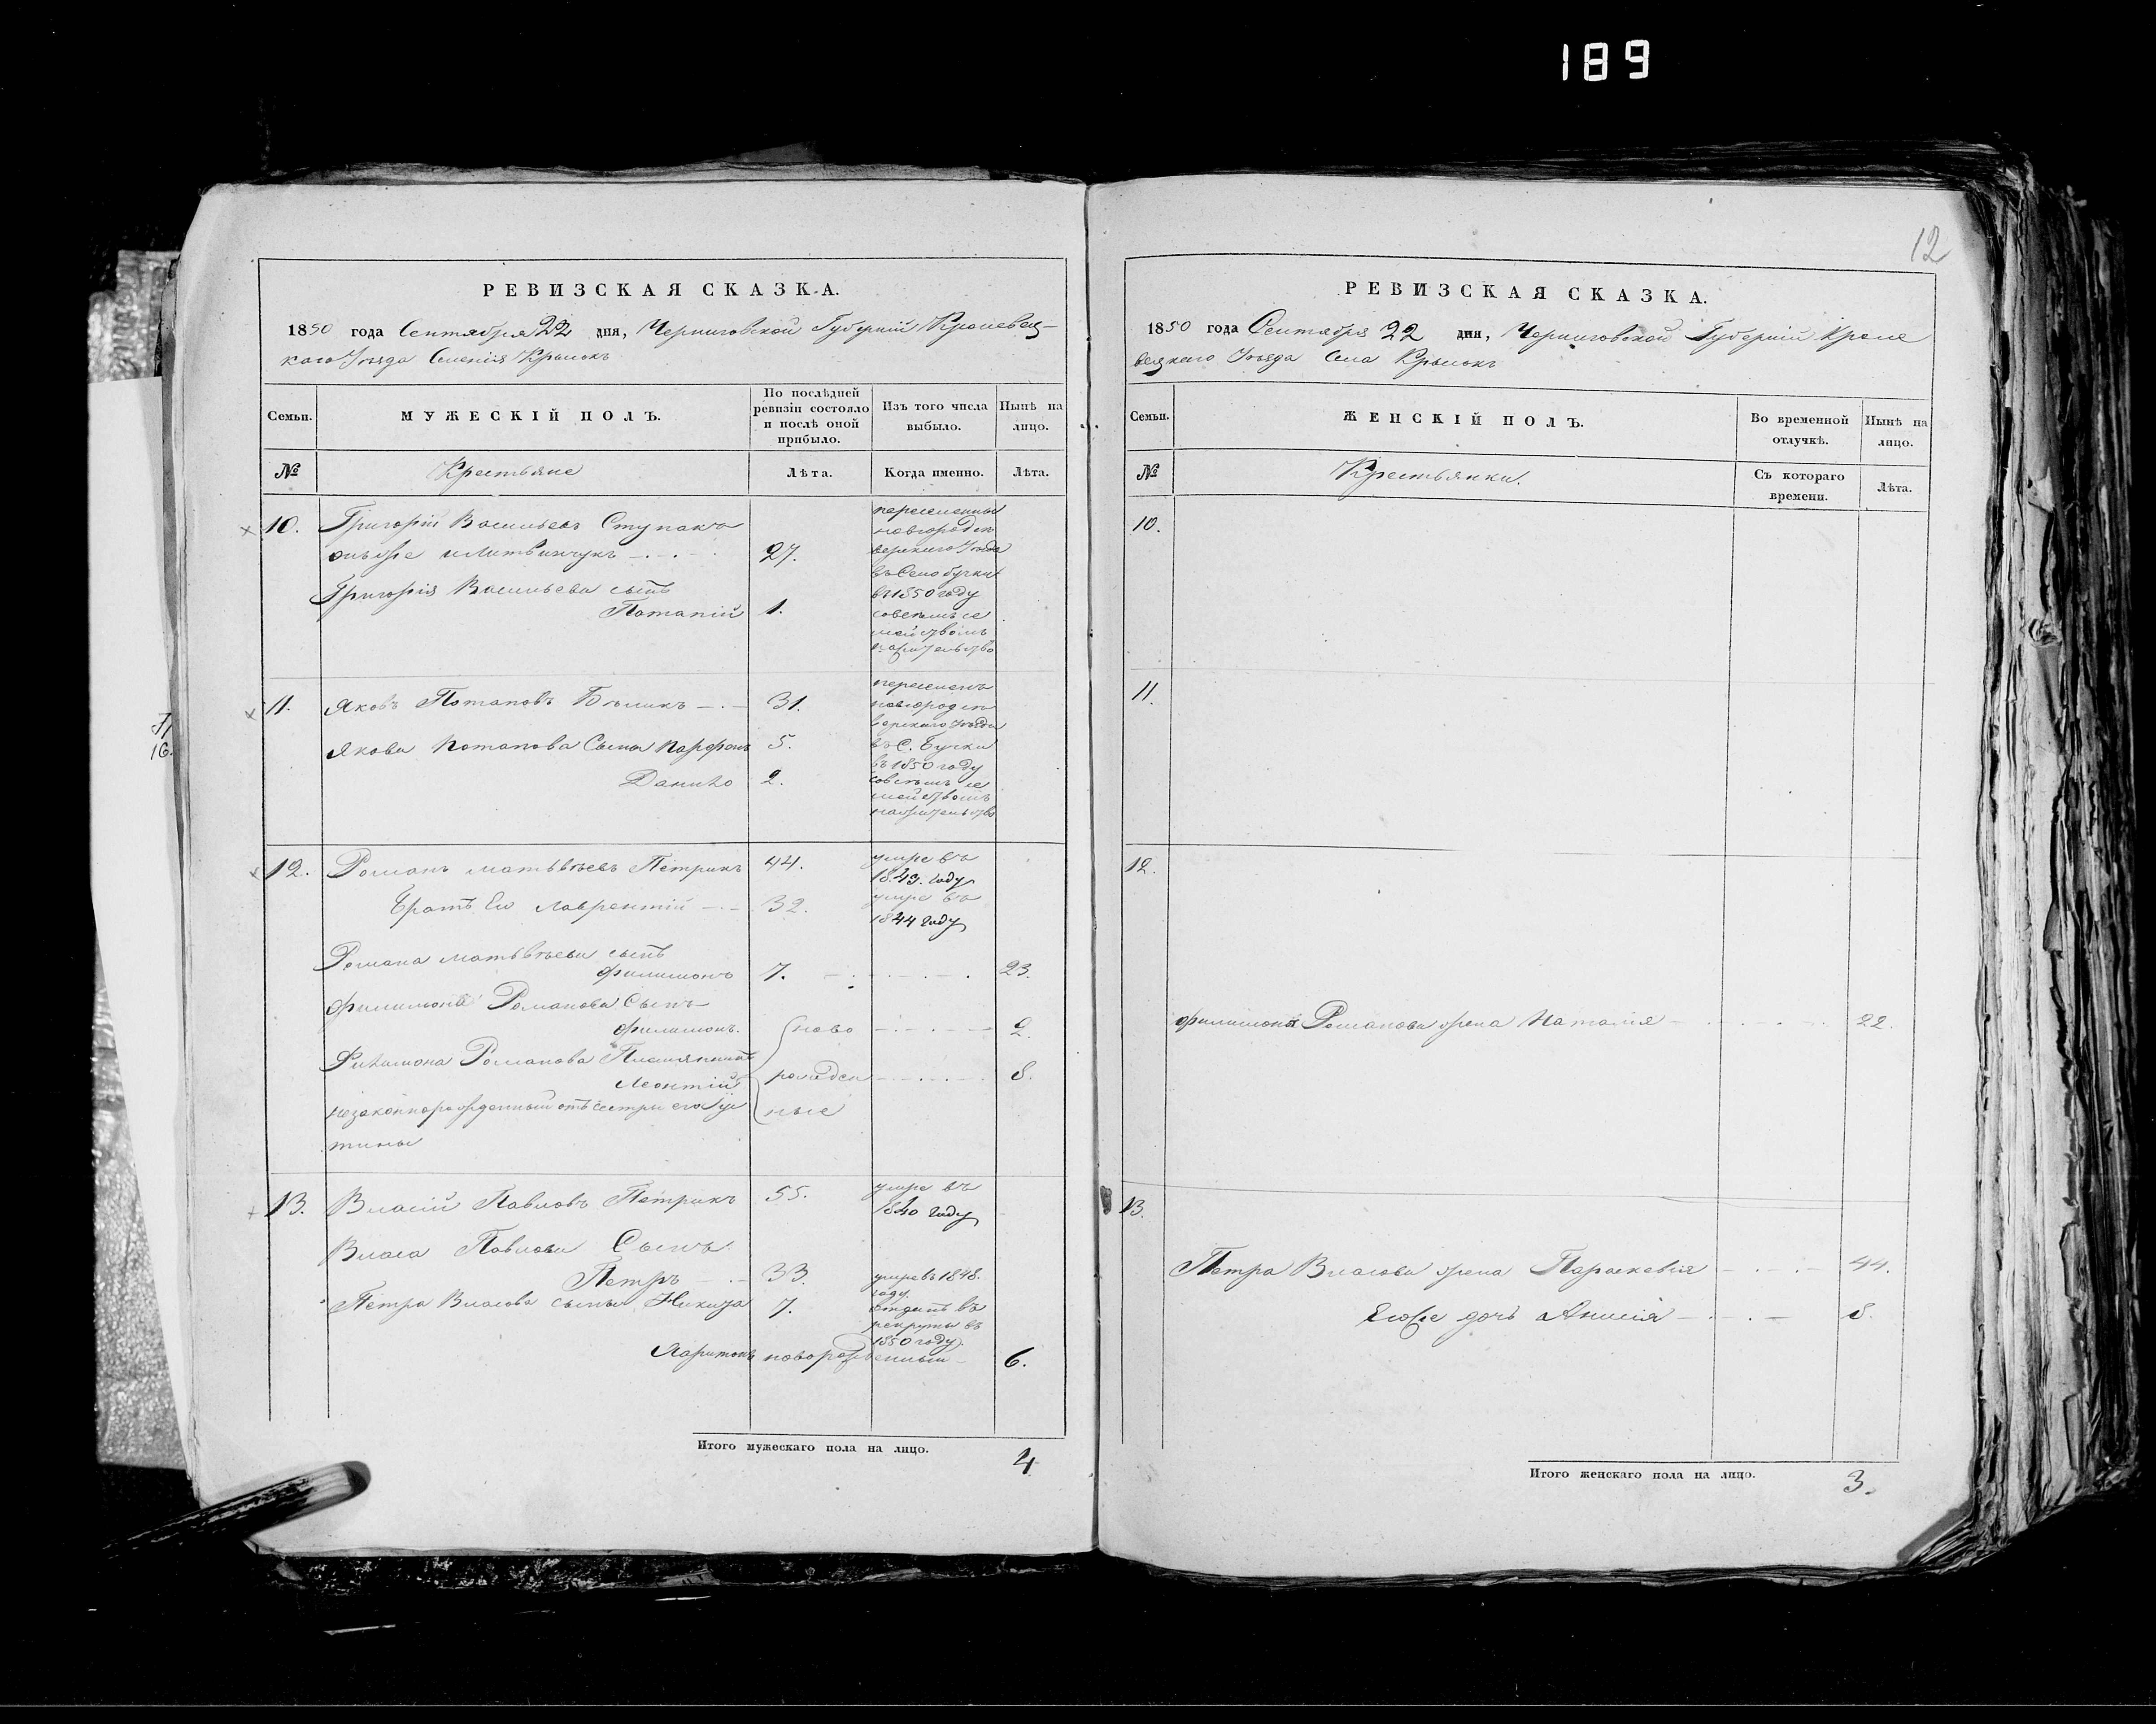 189
12
РЕВИЗСКАЯ СКАЗКА.
1850 года Сентября 22 дня, Черниговской Губерніи Кролевец-
каго Уезда Селенія
Семьи.
МУЖЕСКІЙ ПОЛЪ.
По послѣдней ревизіи состояло и послѣ оной прибыло.
Изъ того числа выбыло.
Нынѣ на лицо.
№
Крестьяне
Лѣта.
Когда именно.
Лѣта.
10. Григорій Васильевъ Ступакъ
онъже и Литвинчукъ 27.
Григорія Васильева сынъ
Потапій 1.
переселены
новгородсе
верскаго Уезда
въ Село Бучки
въ 1850 году
совсемъ се
мействомъ
на жительство
11. Яковъ Потаповъ Беликъ 31.
Якова Потапова Сыны Парфенъ 5.
Данило 2.
переселенъ
новгородсе
верскаго Уезда
въ С. Бучки
въ 1850 году
совсемъ се
мействомъ
на жительство
12. Романъ Матвѣевъ Петрикъ 44.
умре въ
1843. году
Братъ Ево Лаврентій 32.
умре въ
1844 году
Романа Матвѣева сынъ
Филимонъ 7. 23.
Филимона Романова Сынъ
Филимонъ. ново 2.
Филимона Романова Племянникъ
Леонтій рожден 8.
незаконнорожденный отъ сестры его Іус
тины ные
13. Власій Павловъ Петрикъ 55.
умре въ
1840 году
Власа Павлова Сынъ
Петръ 33.
умре въ 1848.
году.
Петра Власова сыны Никита 7.
отданъ въ
рекруты въ
1850 году.
Харитонъ новорожденный 6.
Итого мужескаго пола на лицо.
4
РЕВИЗСКАЯ СКАЗКА.
1850 года Сентября 22 дня, Черниговской Губерніи Кроле
вецкаго Уезда Села
Семьи.
ЖЕНСКІЙ ПОЛЪ.
Во временной отлучкѣ.
Нынѣ на лицо.
№
Крестьянки.
Съ котораго времени.
Лѣта.
10.
11.
12.
Филимона Романова жена Наталія 22.
13.
Петра Власова жена Параскевія 44.
Егоже дочь Анисія 8.
Итого женскаго пола на лицо.
3.
16.